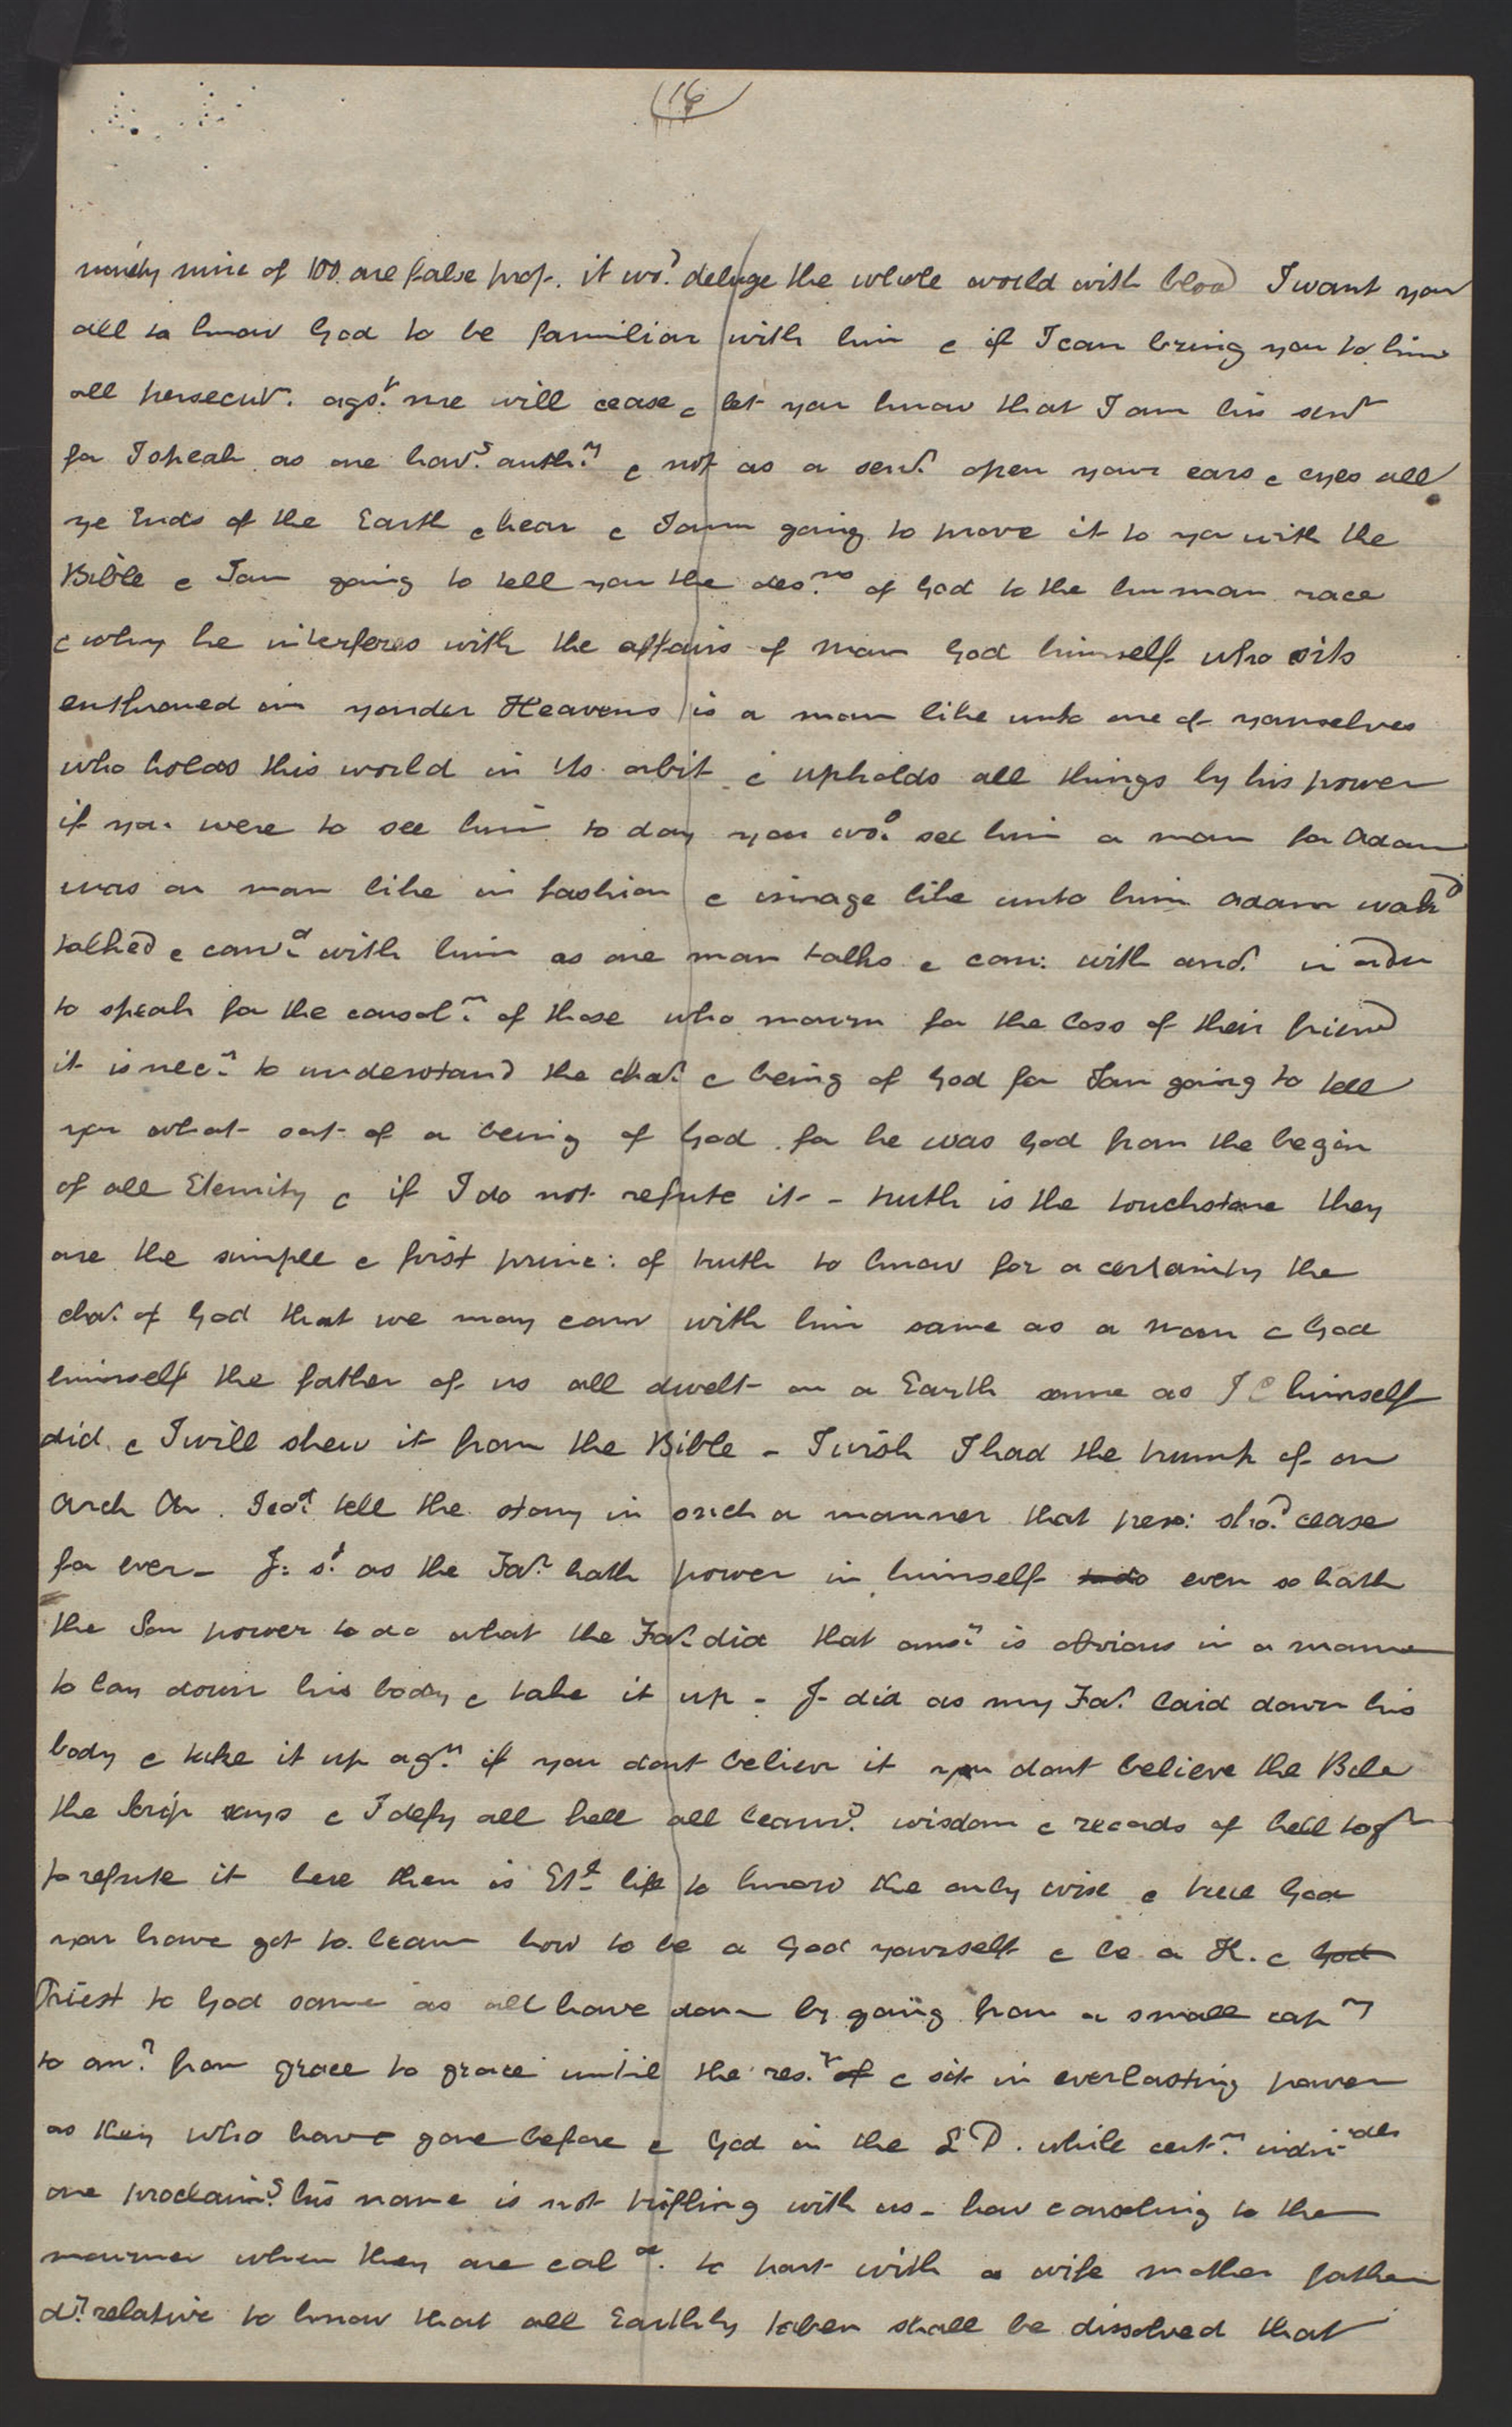 (16)
ninety nine of 100. are false prop. it wod. deluge the whole world with blood I want you
all to know God to be familiar with him & if I can bring you to him
all persecut. agst. me will cease & let you know that I am his servt
for I speak as one havg. authy. & not as a servt. open your ears & eyes all
ye Ends of the Earth & hear & I am going to prove it to you with the
Bible & I am going to tell you the desns. of God to the human race
& why he interferes with the affairs of man God himself who sits
enthroned in yonder Heavens is a man like unto one of yourselves
who holds this world in its orbit & upholds all things by his power
if you were to see him to day you wod. see him a man for Adam
was a man like in fashion & image like unto him Adam wakd
talked & convd. with him as one man talks & com: with anr. in order
to speak for the consoln. of those who mourn for the loss of their friend
it is necy. to understand the char. & being of God for I am going to tell
you what sort of a being of God. for he was God from the begin
of all Eternity & if I do not refute it - truth is the touchstone they
are the simple & first princ: of truth to know for a certainty the
char. of God that we may conv with him same as a man & God
himself the father of us all dwelt on a Earth same as J C himself
did & I will shew it from the Bible - I wish I had the trump of an
Arch An. I cod. tell the story in such a manner that pers: shod. cease
for ever - J: sd. as the Far. hath power in himself to do even so hath
the Son power to do what the Far. did that ansr. is obvious in a manner
to lay down his body & take it up - J did as my Far. laid down his
body & take it up agn. if you dont believe it you dont believe the Bile
the Scrip says & I defy all hell all learng. wisdom & records of hell togr
to refute it here then is Etl. life to know the only wise & true God
you have got to learn how to be a God yourself & be a K. & God
Priest to God same as all have done by going from a small capy
to anr. from grace to grace until the resn. of & sit in everlasting power
as they who have gone before & God in the L D. while certn. indivdls
are proclaimg. his name is not trifling with us - how consoling to the
mourner when they are cald. to part with a wife mother father
dr. relative to know that all Earthly taber shall be dissolved that